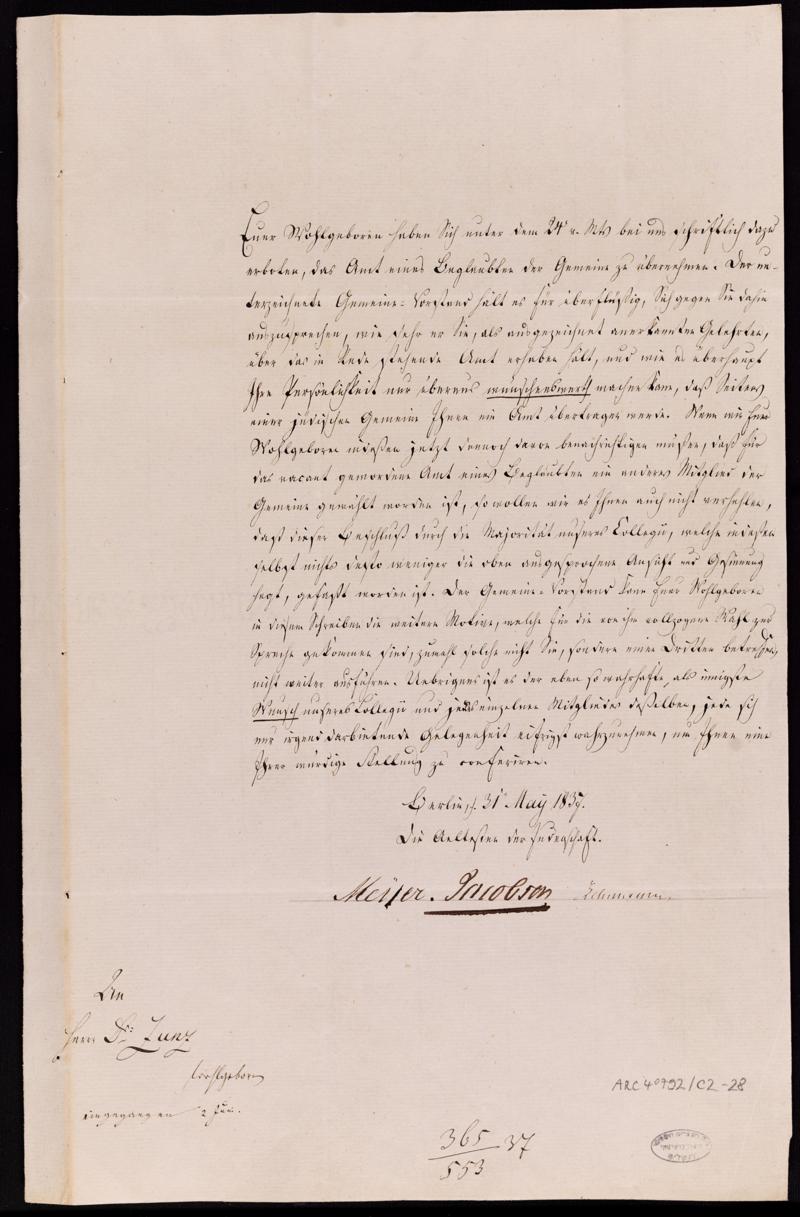 Euer Wohlgeboren haben Sich unter dem 24ᵗ v. Mts bei uns schriftlich dazu
erboten, das Amt eines Beglaubten der Gemeine zu übernehmen. Der un-
terzeichnete Gemeine-Vorstand hält es für überflüßig, Sich gegen Sie dahin
auszusprechen, wie sehr er Sie, als ausgezeichnet anerkannten Gelehrten,
über das in Rede stehende Amt erhaben hält, und wie es überhaupt
Ihre Persönlichkeit nur überaus wünschenswerth machen kann, daß Seitens
einer jüdischen Gemeine Ihnen ein Amt übertragen werde. Wenn wir Euer
Wohlgeboren indeßen jetzt dennoch davon benachrichtigen müßen, daß für
das vacant gewordene Amt eines Beglaubten ein anderes Mitglied der
Gemeine gewählt worden ist, so wollen wir es Ihnen auch nicht verhehlen,
daß dieser Beschluß durch die Majorität unseres Collegii, welche indeßen
selbst nichts desto weniger die oben ausgesprochene Ansicht und Gesinnung
hegt, gefaßt worden ist. Der Gemeine-Vorstand kann Euer Wohlgeboren
in diesem Schreiben die weitere Motive, welche für die von ihm vollzogene Wahl zur
Sprache gekommen sind, zumahl solche nicht Sie, sondern einen Dritten betreffen,
nicht weiter ausführen. Uebrigens ist es der eben so wahrhafte, als innigste
Wunsch unseres Collegii und jedes einzelnen Mitgliedes deßelben, jede sich
nur irgend darbietende Gelegenheit eifrigst wahrzunehmen, um Ihnen eine
Ihrer würdige Stellung zu conferiren.
Berlin, d. 31ᵗ May 1837.
Die Aeltesten der Judenschaft.
Meyer. Jacobson
An
Herrn Dr: Zunz
Wohlgeboren
eingegangen 2 Jun.
ARC 4° 792/C2-28
365 37
553